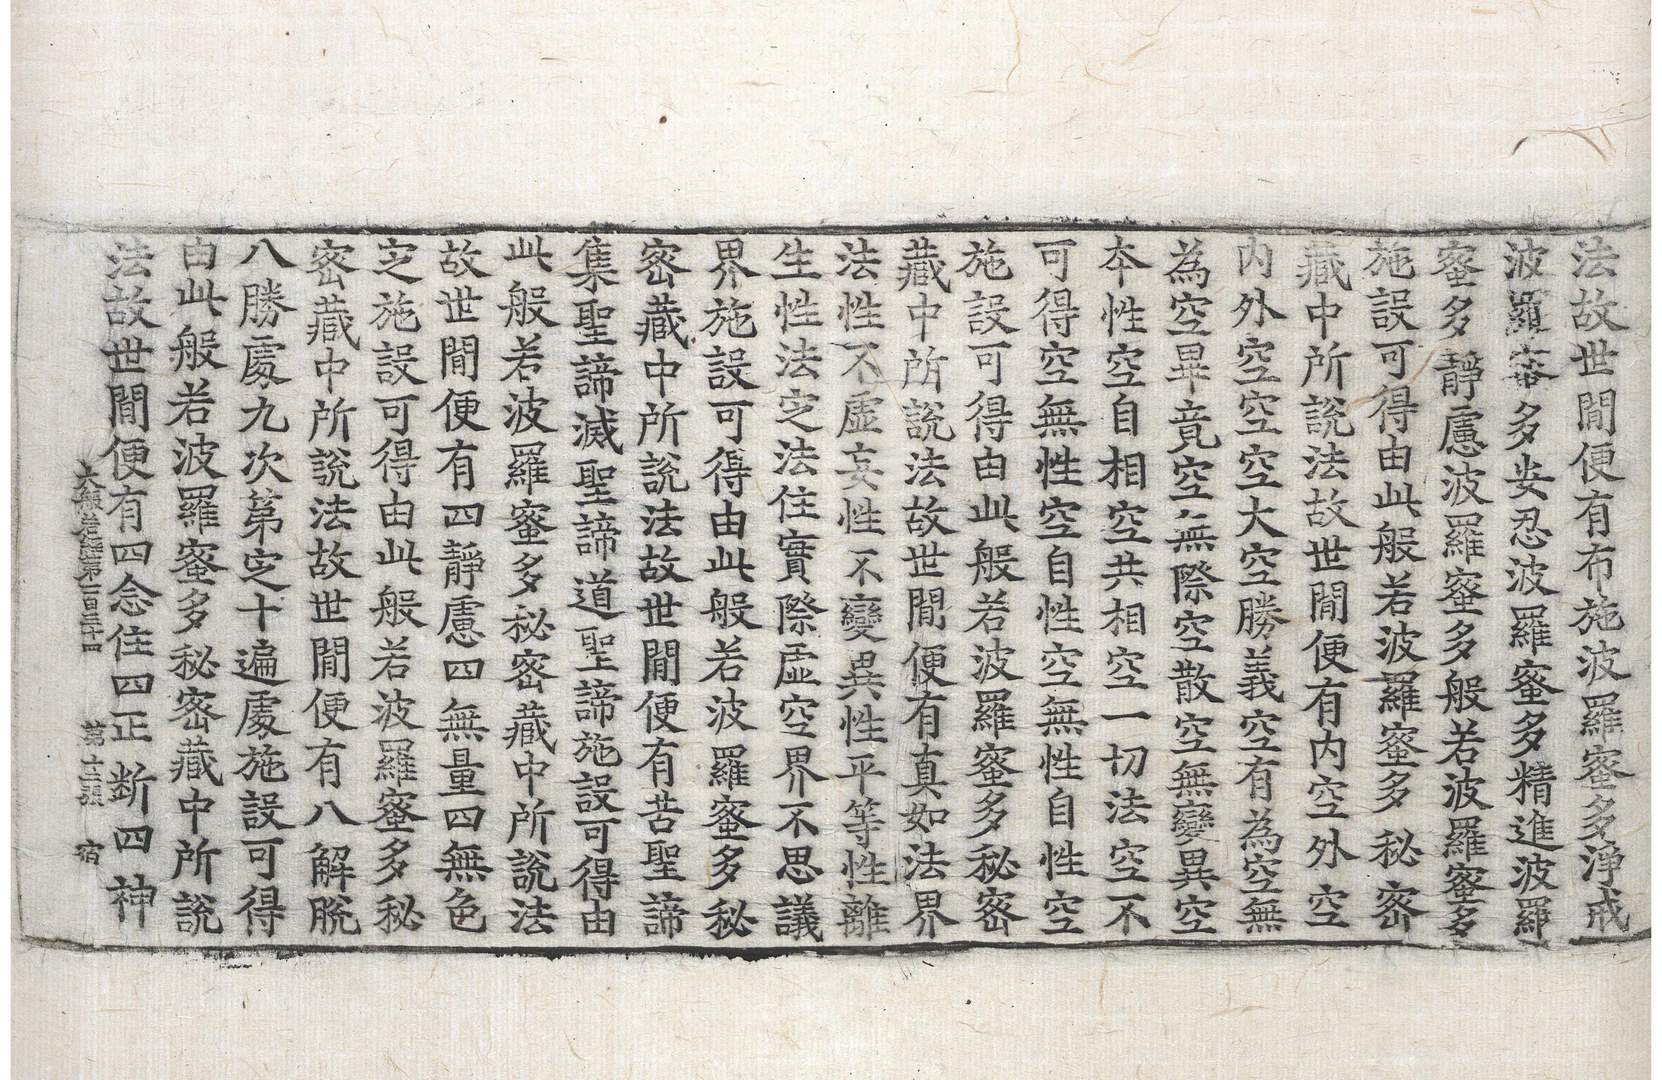 法故世間便有布施波羅蜜多淨戒
波羅蜜多安忍波羅蜜多精進波羅
蜜多靜慮波羅蜜多般若波羅蜜多
施設可得由此般若波羅蜜多秘密
藏中所說法故世間便有內空外空
內外空空空大空勝義空有為空無
為空畢竟空無際空散空無變異空
本性空自相空共相空一切法空不
可得空無性空自性空無性自性空
施設可得由此般若波羅蜜多秘密
藏中所說法故世間便有真如法界
法性不虛妄性不變異性平等性離
生性法定法住實際虛空界不思議
界施設可得由此般若波羅蜜多秘
密藏中所說法故世間便有苦聖諦
集聖諦滅聖諦道聖諦施設可得由
此般若波羅蜜多秘密藏中所說法
故世間便有四靜慮四無量四無色
定施設可得由此般若波羅蜜多秘
密藏中所說法故世間便有八解脫
八勝處九次第定十遍處施設可得
由此般若波羅蜜多秘密藏中所說
法故世間便有四念住四正斷四神
大般若經第一百三十四 第十二張 宿